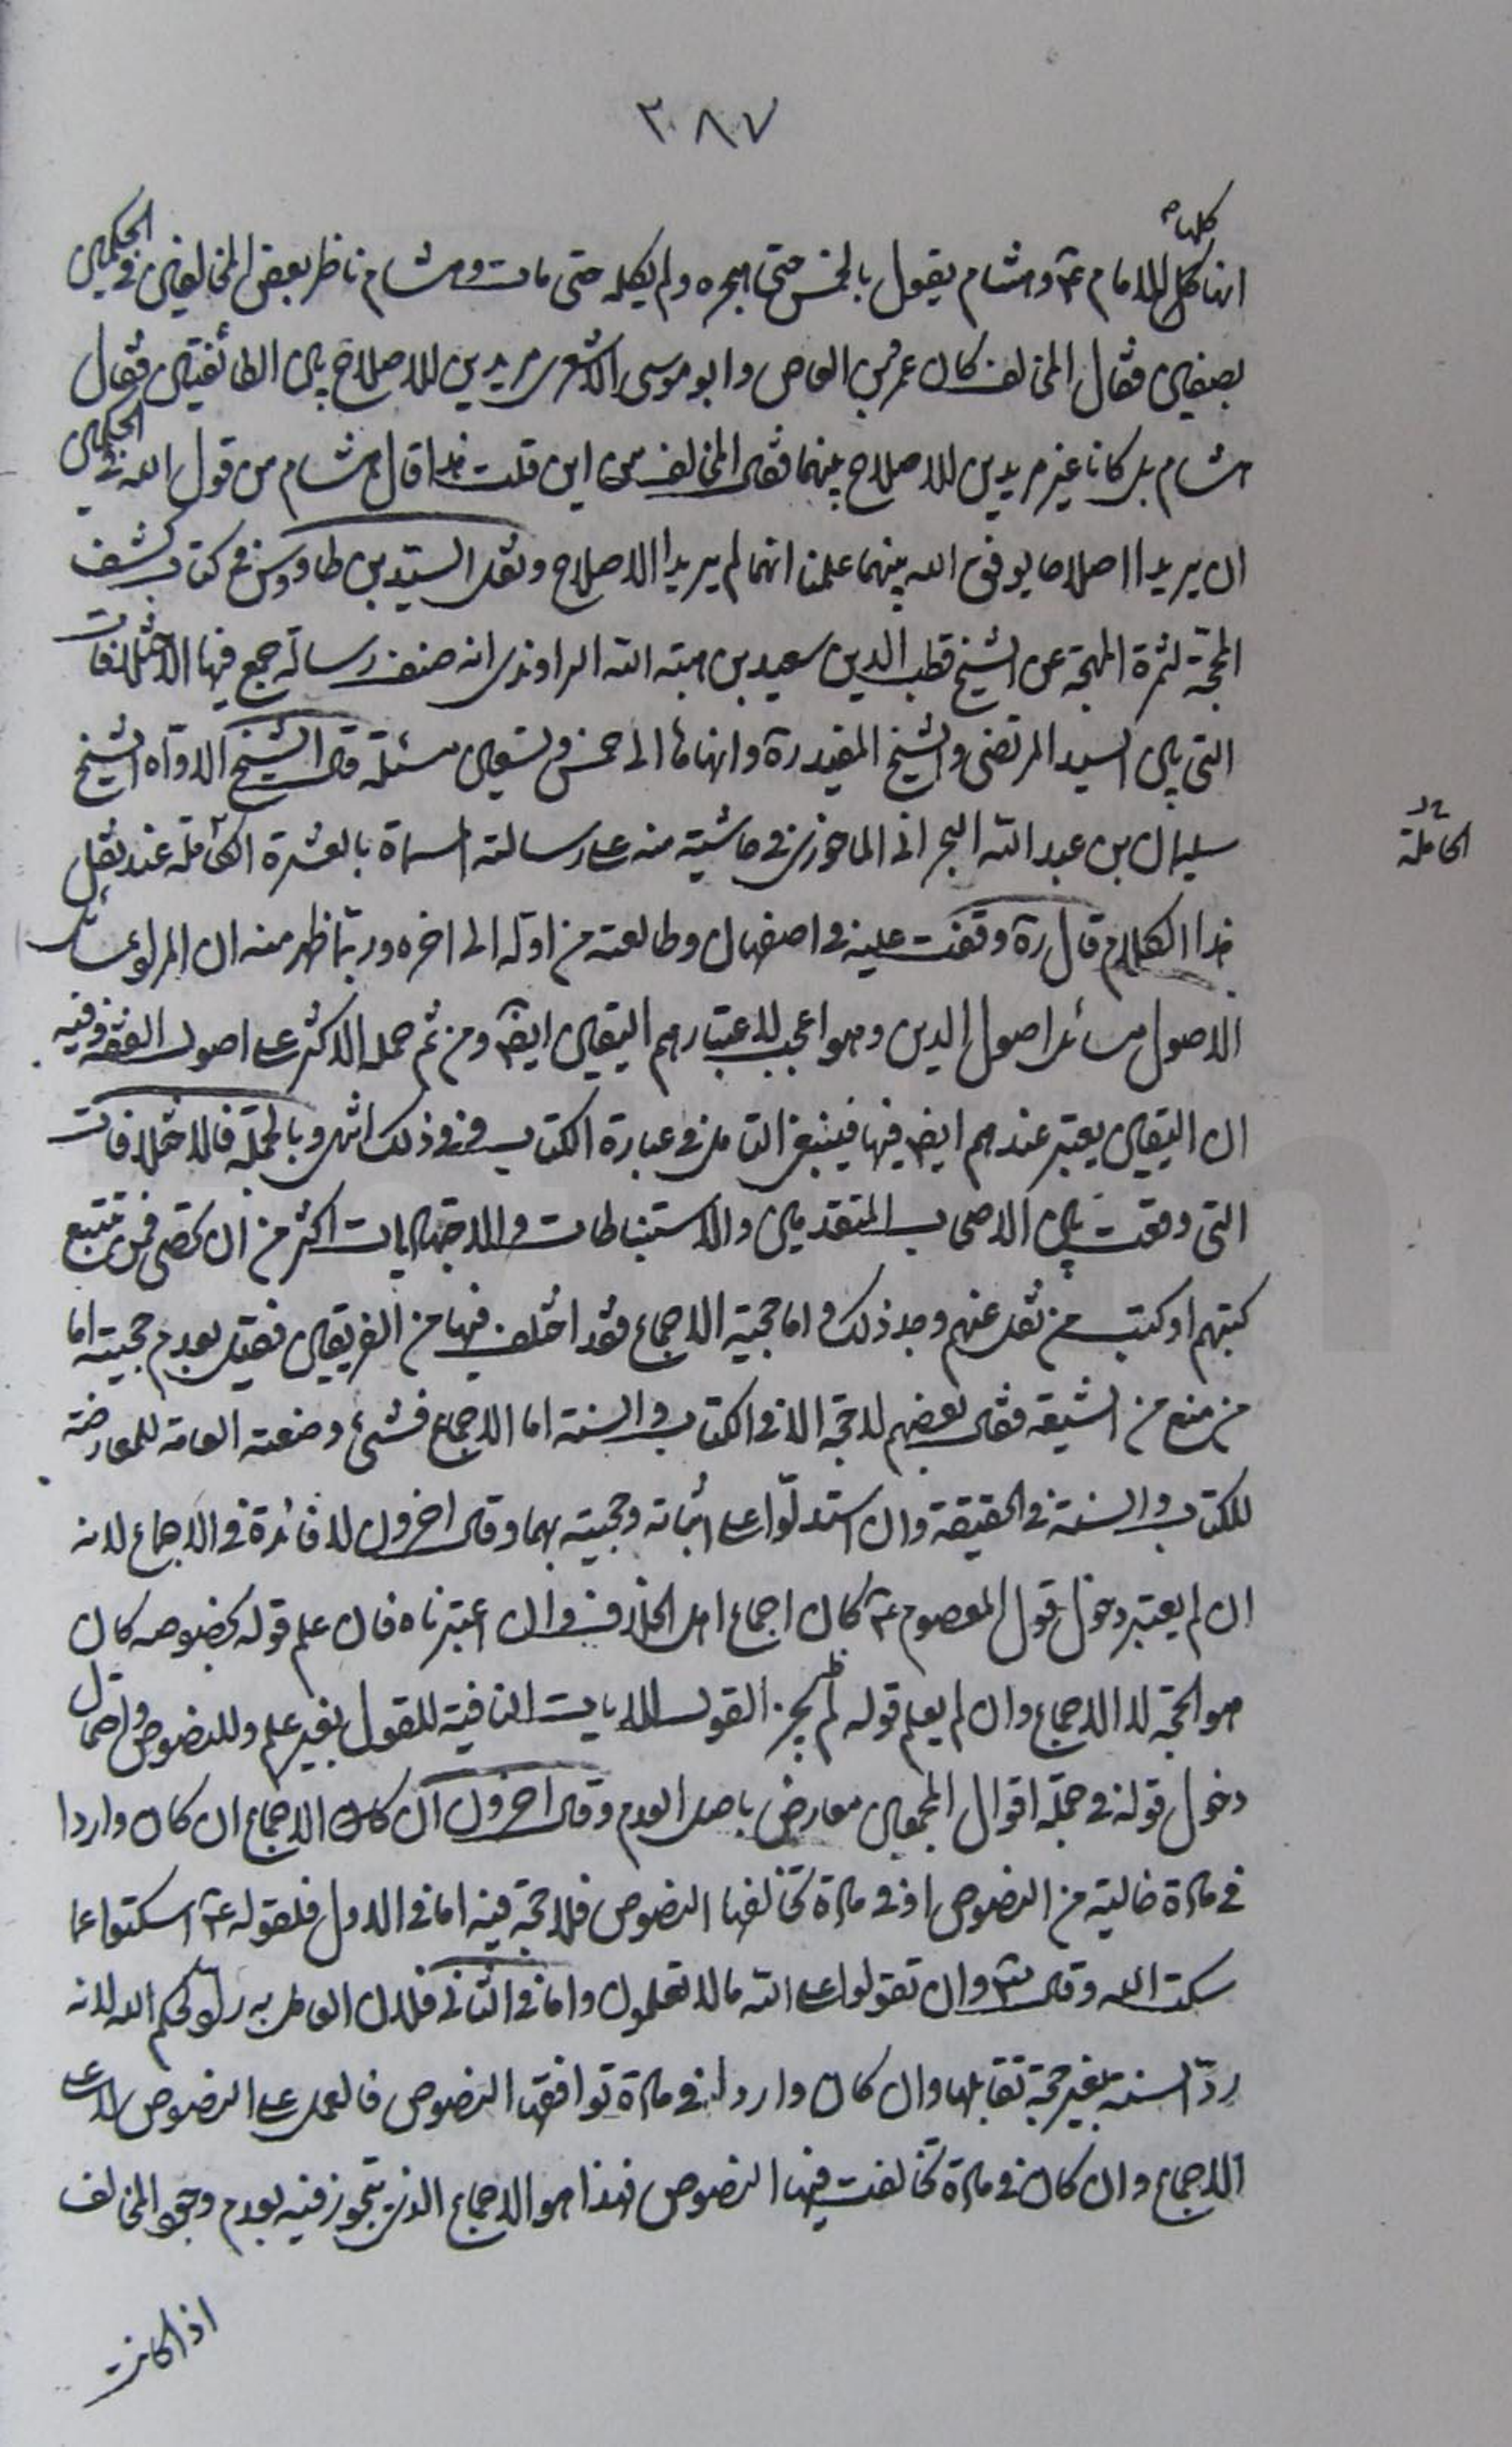 ٣٠٨٧
كلها
انها كل للامام ع و هشام يقول بالخمس حتى هجره ولم يكلمه حتى مات وهشام ناظر بعض المخالفين في الحكمين
بصفين فقال المخالف كان عمرو بن العاص وابو موسى الاشعرى مريدين للاصلاح بين الطائفتين فقال
هشام بل كانا غير مريدين للاصلاح بينهما فقال المخالف من اين قلت هذا قال هشام من قول الله في الحكمين
ان يريدا اصلاحا يوفق الله بينهما علمنا انهما لم يريدا الاصلاح ونقل السيد بن طاووس في كتاب كشف
المحجة لثمرة المهجة عن الشيخ قطب الدين سعيد بن هبة الله الراوندى انه صنف رسالة جمع فيها الاختلافات
التى بين السيد المرتضى والشيخ المفيد ره وانهاها الى خمس وتسعين مسئلة قال الشيخ الاواه الشيخ
سليمان بن عبد الله البحرانى الماحوزى فى حاشية منه على رسالته المسماة بالعشرة الكاملة عند نقل
الكاملة
هذا الكلام قال ره وقفت عليه فى اصفهان وطالعته من اوله الى اخره وربما ظهر منه ان المراد بمسائل
الاصول مسائل اصول الدين وهو اعجب لاعتبارهم اليقين ايضا ومن ثم حمله الاكثر على اصول الفقه وفيه
ان اليقين يعتبر عندهم ايضا فيها فينبغى التامل فى عبارة الكتاب ففى ذلك اشهر وبالجملة فالاختلافات
التى وقعت بين الاصحاب المتقدمين والاستنباطات والاجتهاديات اكثر من ان تحصى فمن تتبع
كتبهم او كتب من نقل عنهم وجد ذلك واما حجية الاجماع فقد اختلف فيها من الفريقين فقيل بعدم حجيته اما
من منع من الشيعة فقال بعضهم لا حجة الا فى الكتاب والسنة اما الاجماع فشئ وضعته العامة للمعارضة
للكتاب والسنة فى الحقيقة وان استدلوا على اثباته وحجيته بهما وقال اخرون لا فائدة فى الاجماع لانه
ان لم يعتبر دخول قول المعصوم ع كان اجماع اهل الخلاف وان اعتبرناه فان علم قوله بخصوصه كان
هو الحجة لا الاجماع وان لم يعلم قوله لم يجز القول للايات النافية للقول بغير علم وللنصوص واحتمال
دخول قوله فى جملة اقوال المجمعين معارض باصل العدم وقال اخرون ان كان الاجماع ان كان واردا
فى مادة خالية من النصوص او فى مادة تخالفها النصوص فلا حجة فيه اما فى الاول فلقوله ع اسكتوا عما
سكت الله وقال تع وان تقولوا على الله ما لا تعلمون واما فى الثانى فلان العامل به راد لحكم الله لانه
رد السنة بغير حجة تقابلها وان كان واردا فى مادة توافقها النصوص فالعمل على النصوص لا على
الاجماع وان كان فى مادة تخالفت فيها النصوص فهذا هو الاجماع الذى يتجوز فيه بعدم وجود المخالف
اذا كانت